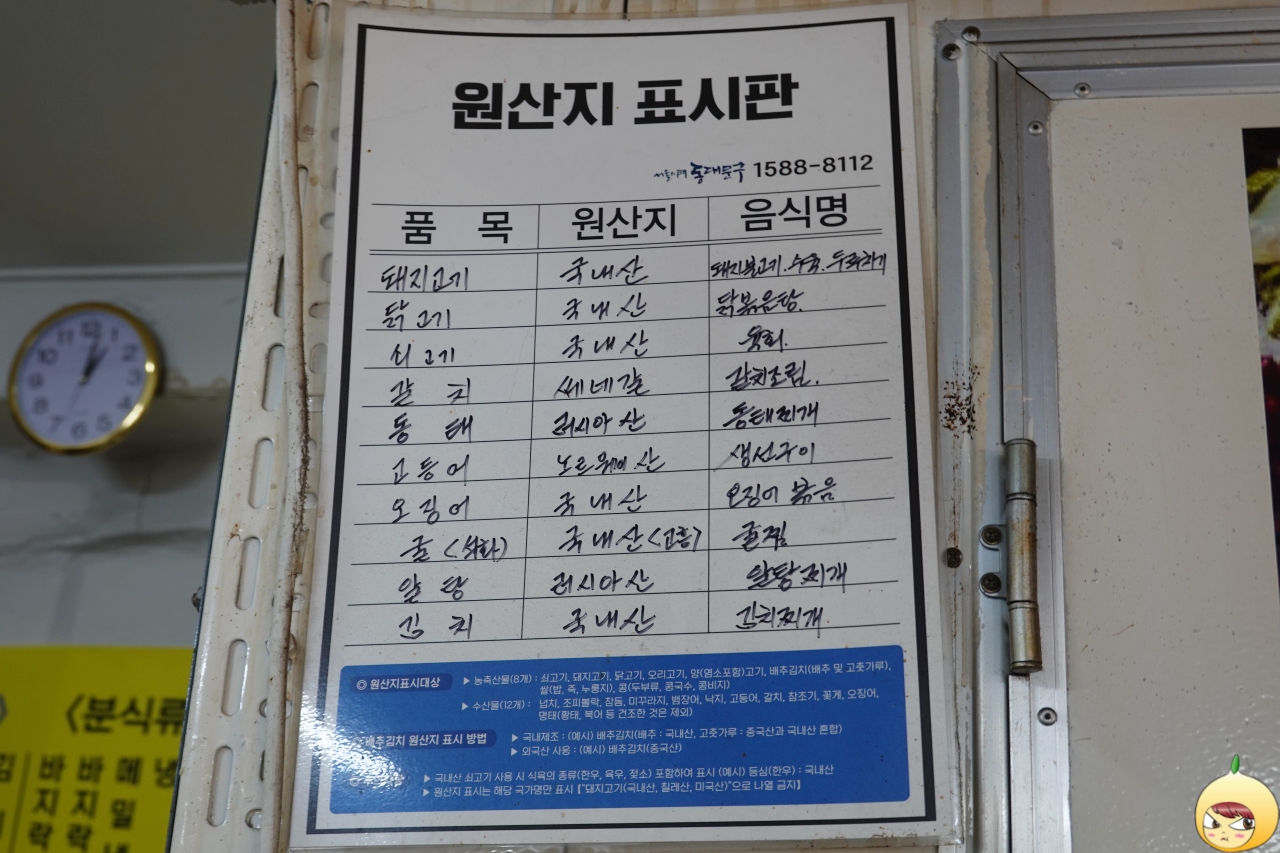 원산지 표시판
서울시 동대문구 1588-8112
품 목 원산지 음식명
돼지고기 국내산 돼지불고기. 수육. 두루치기
닭고기 국내산 닭볶음탕.
쇠고기 국내산 육회.
갈 치 쎄네갈 갈치조림.
동 태 러시아산 동태찌개
고등어 노르웨이산 생선구이
오징어 국내산 오징어 볶음
굴 <석화> 국내산 <고흥> 굴찜
알 탕 러시아산 알탕찌개
김 치 국내산 김치찌개.
◎ 원산지표시대상 ▶ 농축산물(8개) : 쇠고기, 돼지고기, 닭고기, 오리고기, 양(염소포함)고기, 배추김치(배추 및 고춧가루),
쌀(밥, 죽, 누룽지), 콩(두부류, 콩국수, 콩비지)
▶ 수산물(12개) : 넙치, 조피볼락, 참돔, 미꾸라지, 뱀장어, 낙지, 고등어, 갈치, 참조기, 꽃게, 오징어,
명태(황태, 북어 등 건조한 것은 제외)
배추김치 원산지 표시 방법 ▶ 국내제조 : (예시) 배추김치(배추 : 국내산, 고춧가루 : 중국산과 국내산 혼합)
▶ 외국산 사용 : (예시) 배추김치(중국산)
▶ 국내산 쇠고기 사용 시 식육의 종류(한우, 육우, 젖소) 포함하여 표시 (예시) 등심(한우) : 국내산
▶ 원산지 표시는 해당 국가명만 표시 【"돼지고기(국내산, 칠레산, 미국산)"으로 나열 금지】
12
1
2
3
4
5
6
7
8
9
10
11
<분식류
김 바 바 메 냉
지 지 밀
락 락